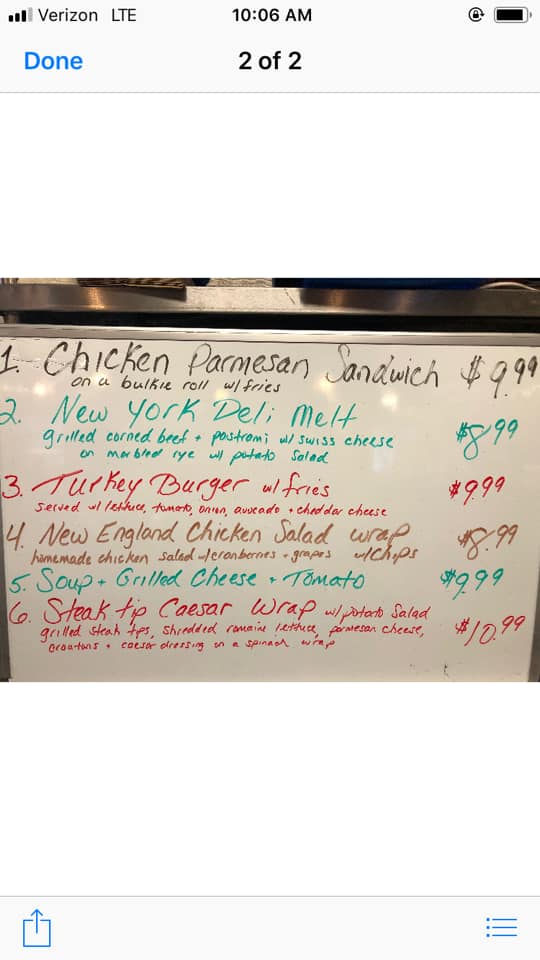 Verizon LTE 10:06 AM
Done 2 of 2
1. Chicken Parmesan Sandwich $9.99
on a bulkie roll w/ fries
2. New York Deli Melt $8.99
grilled corned beef + pastromi w/ swiss cheese
on marbled rye w/ potato Salad
3. Turkey Burger w/ fries $9.99
Served w/ lettuce, tomato, onion, avocado + cheddar cheese
4. New England Chicken Salad wrap $8.99
homemade chicken salad w/cranberries + grapes w/Chips
5. Soup + Grilled Cheese + Tomato $9.99
6. Steak tip Caesar Wrap w/ potato Salad $10.99
grilled steak tips, shredded romaine lettuce, parmesan cheese,
croutons + caesar dressing on a spinach wrap